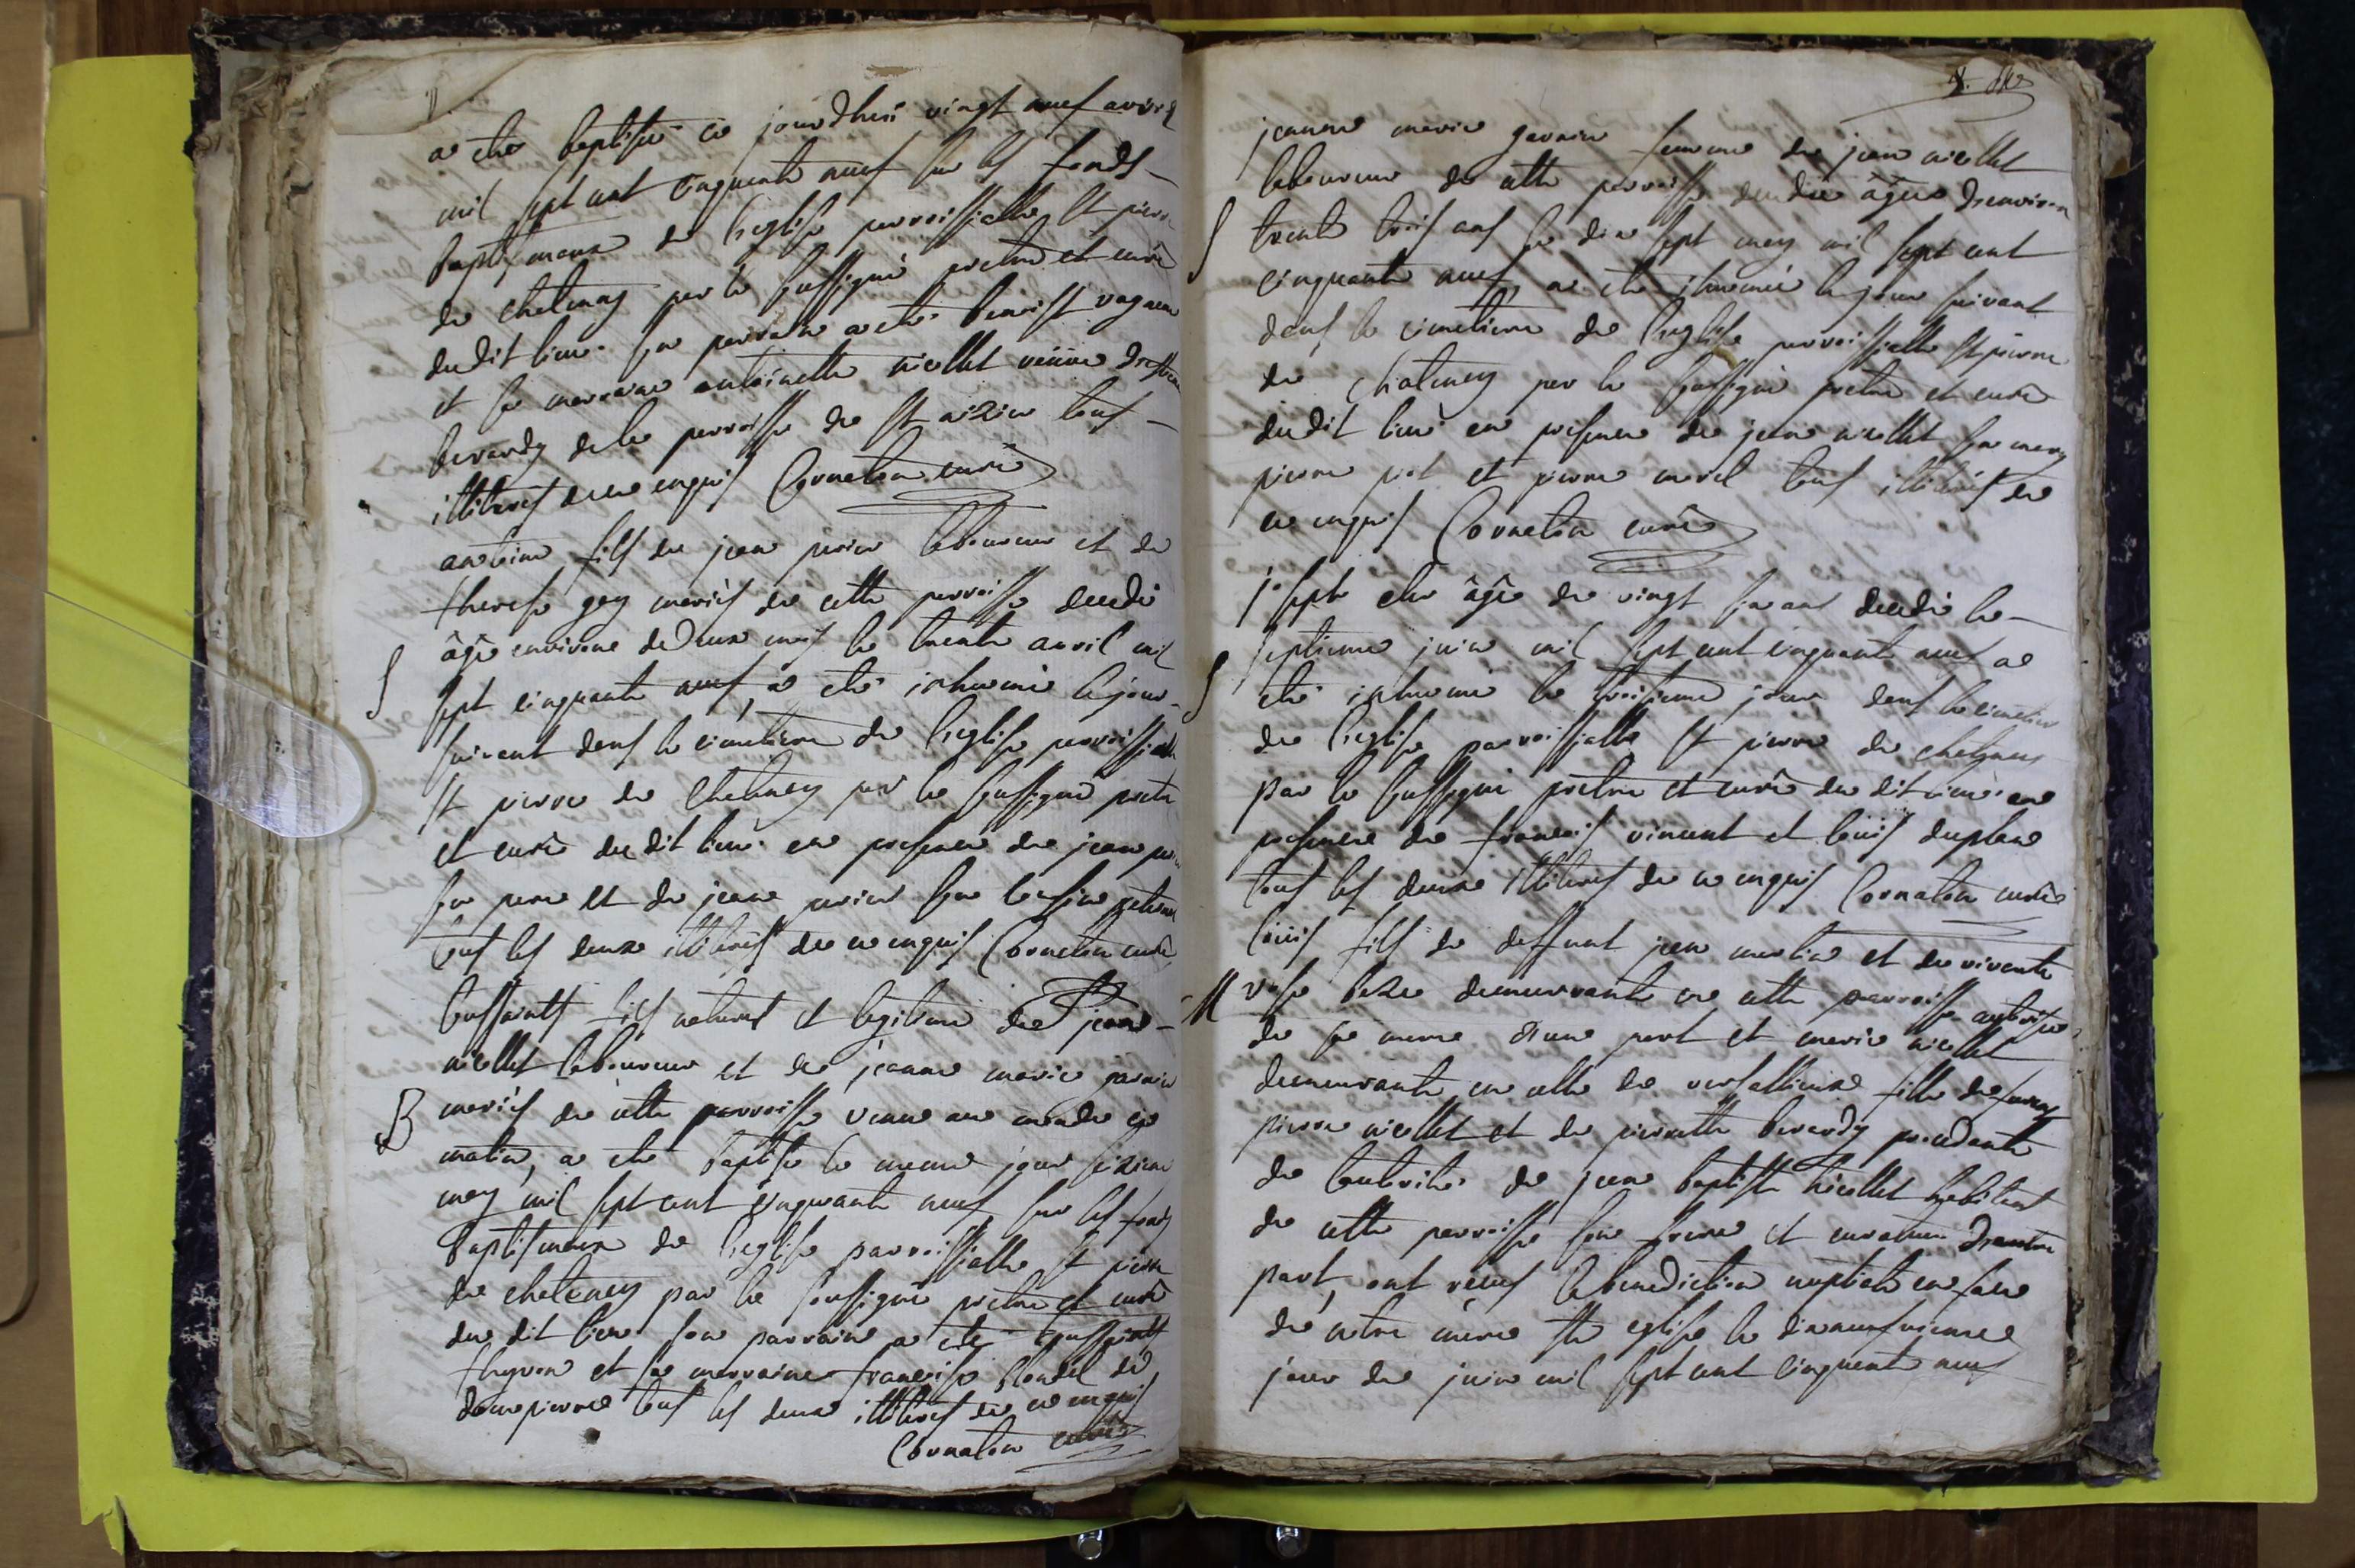 a eté baptisé ce jourdhuï vingt neuf avril
mil sept cent cinquante neuf sur les fonds
baptismaux de l'eglise parroissialle St pierre
de chatenay par le soussigné pretre et curé
dudit lieu. son parrain a eté benoist
et sa marraine antoinette nicollet veüve
berardy de la parroisse de St nizier tous
illiterés de ce enquis Cornaton curé
antoine fils de jean perin laboureur et de
therese goy mariés de cette parroisse decedé
âgé environ de deux mois le trente avril mil
sept cinquante neuf, a eté inhumé le jour
suivant dans le cimetiere de l'eglise parroissialle
St pierre de Chatenay par le soussigné pretre
et curé dudit lieu en presence de jean perin
son pere et de jean perin son cousin
tous les deux illiterés de ce enquis Cornaton curé
Toussaints fils naturel et legitime de jean
nicollet laboureur et de jeanne marie janin
B mariés de cette parroisse venu au monde ce
matin, a eté baptisé le meme jour sixieme
may mil sept cent cinquante neuf sur les fonds
Baptismaux de l'eglise parroissialle St pierre
de chatenay par le soussigné pretre et curé
du dit lieu son parrain a eté Toussaints
thyvon et sa marraine françoise blondel de
dompierre tous les deux illiterés de ce enquis
Cornaton curé
jeanne marie janin femme de jean nicollet
laboureur de cette parroisse decedée âgée d'environ
S trente trois ans le dix sept may mil sept cent
cinquante neuf, a eté inhumée le jour suivant
dans le cimetiere de l'eglise parroissialle St pierre
de Chatenay par le soussigné pretre et curé
dudit lieu en presence de jean nicollet son mary
pierre piot et pierre morel tous illiterés de
ce enquis Cornaton curé
joseph âgé de vingt six ans decedé le
septieme juin mil sept cent cinquante neuf a
S eté inhumé le troisieme jour dans le cimetiere
de l'eglise parroissialle St pierre de chatenay
par le soussigné prêtre et curé du dit lieu en
presence de françois vincent et loüis duplan
tous les deux illiterés de ce enquis Cornaton curé
loüis fils de deffunt jean martin et de vivante
M demeurante en cette parroisse autorisé
de sa mere d'une part et marie nicollet
demeurante en celle de versallieux fille de
pierre nicollet et de pierrette berardy procedante
de l'autorité de jean baptiste nicollet habitant
de cette parroisse son frere et curateur d'autre
part, ont reçus la benediction nuptiale en face
de notre mere Ste eglise le dixneufvieme
jour de juin mil sept cent cinquante neuf